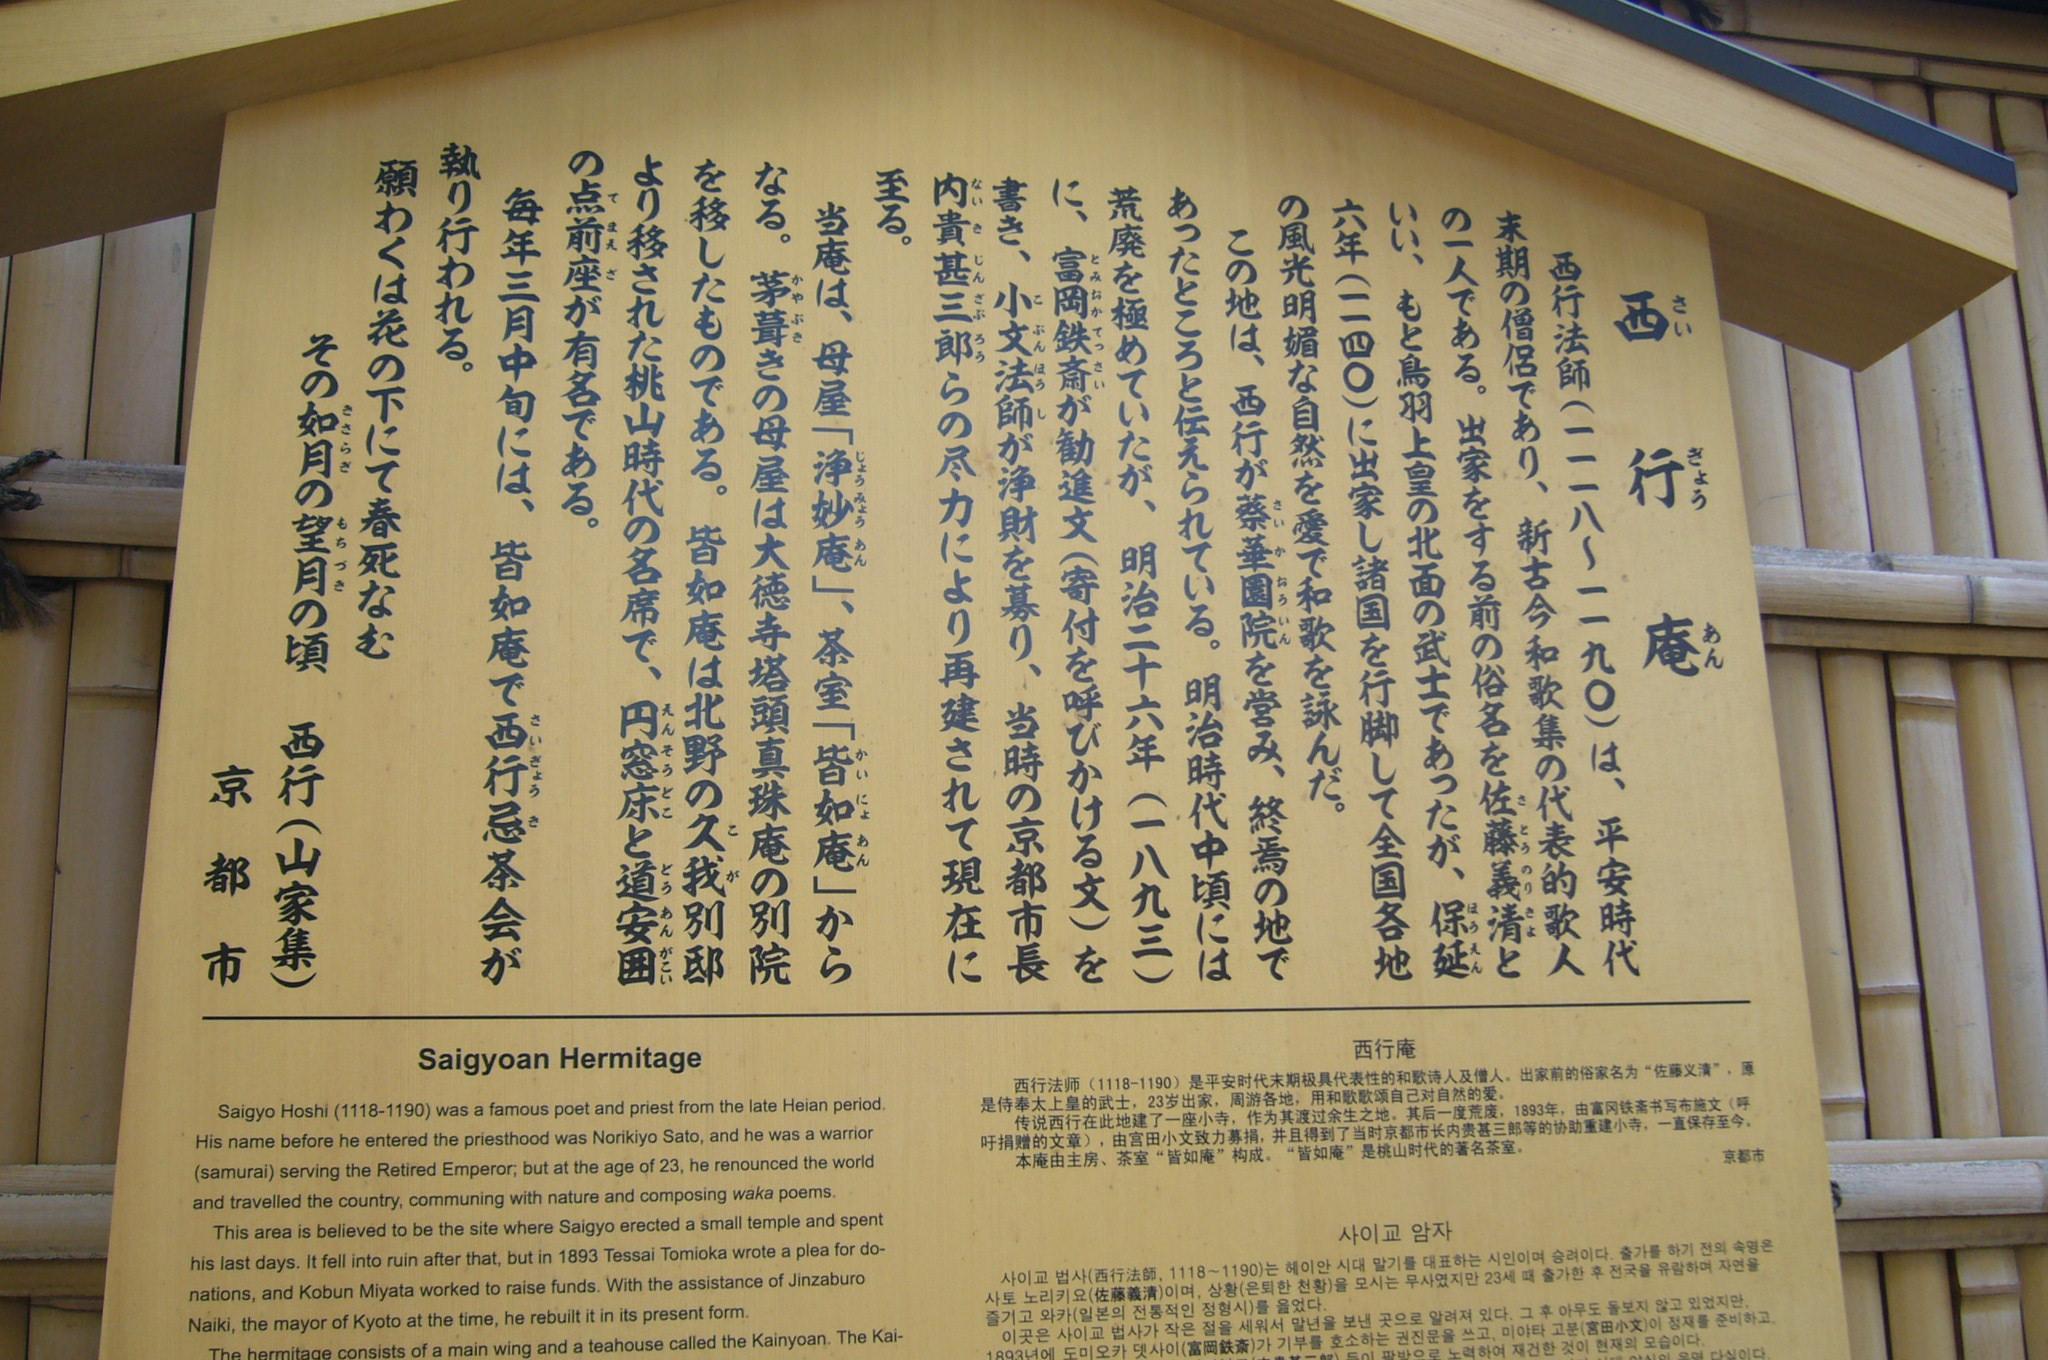 西行庵
さいぎょうあん
西行法師(一一一八~一一九〇)は、平安時代
末期の僧侶であり、新古今和歌集の代表的歌人
の一人である。出家をする前の俗名を佐藤義清と
いい、もと鳥羽上皇の北面の武士であったが、保延
六年(一一四〇)に出家し諸国を行脚して全国各地
の風光明媚な自然を愛で和歌を詠んだ。
この地は、西行が蔡華園院を営み、終焉の地で
あったところと伝えられている。明治時代中頃には
荒廃を極めていたが、明治二十六年(一八九三)
に、富岡鉄斎が勧進文(寄付を呼びかける文)を
書き、小文法師が浄財を募り、当時の京都市長
内貴甚三郎らの尽力により再建されて現在に
至る。
当庵は、母屋「浄妙庵」、茶室「皆如庵」から
なる。茅葺きの母屋は大徳寺塔頭真珠庵の別院
を移したものである。皆如庵は北野の久我別邸
より移された桃山時代の名席で、円窓床と道安囲
の点前座が有名である。
毎年三月中旬には、皆如庵で西行忌茶会が
執り行われる。
願わくは花の下にて春死なむ
その如月の望月の頃 西行(山家集)
京都市
Saigyoan Hermitage
Saigyo Hoshi (1118-1190) was a famous poet and priest from the late Heian period.
His name before he entered the priesthood was Norikiyo Sato, and he was a warrior
(samurai) serving the Retired Emperor; but at the age of 23, he renounced the world
and travelled the country, communing with nature and composing waka poems.
This area is believed to be the site where Saigyo erected a small temple and spent
his last days. It fell into ruin after that, but in 1893 Tessai Tomioka wrote a plea for do-
nations, and Kobun Miyata worked to raise funds. With the assistance of Jinzaburo
Naiki, the mayor of Kyoto at the time, he rebuilt it in its present form.
The hermitage consists of a main wing and a teahouse called the Kainyoan. The Kai-
西行庵
西行法师(1118-1190)是平安时代末期极具代表性的和歌诗人及僧人。出家前的俗家名为“佐藤义清”,原
是侍奉太上皇的武士,23岁出家,周游各地,用和歌歌颂自己对自然的爱。
传说西行在此地建了一座小寺,作为其渡过余生之地。其后一度荒废,1893年,由富冈铁斋书写布施文(呼
吁捐赠的文章),由宫田小文致力募捐,并且得到了当时京都市长内贵甚三郎等的协助重建小寺,一直保存至今。
本庵由主房、茶室“皆如庵”构成。“皆如庵”是桃山时代的著名茶室。
京都市
사이교 암자
사이교 법사(西行法師, 1118~1190)는 헤이안 시대 말기를 대표하는 시인이며 승려이다. 출가를 하기 전의 속명은
사토 노리키요(佐藤義清)이며, 상황(은퇴한 천황)을 모시는 무사였지만 23세 때 출가한 후 전국을 유람하며 자연을
즐기고 와카(일본의 전통적인 정형시)를 읊었다.
이곳은 사이교 법사가 작은 절을 세워서 말년을 보낸 곳으로 알려져 있다. 그 후 아무도 돌보지 않고 있었지만,
1893년에 도미오카 뎃사이(富岡鉄斎)가 기부를 호소하는 권진문을 쓰고, 미야타 고분(宮田小文)이 정재를 준비하고,
등이 팔방으로 노력하여 재건한 것이 현재의 모습이다.